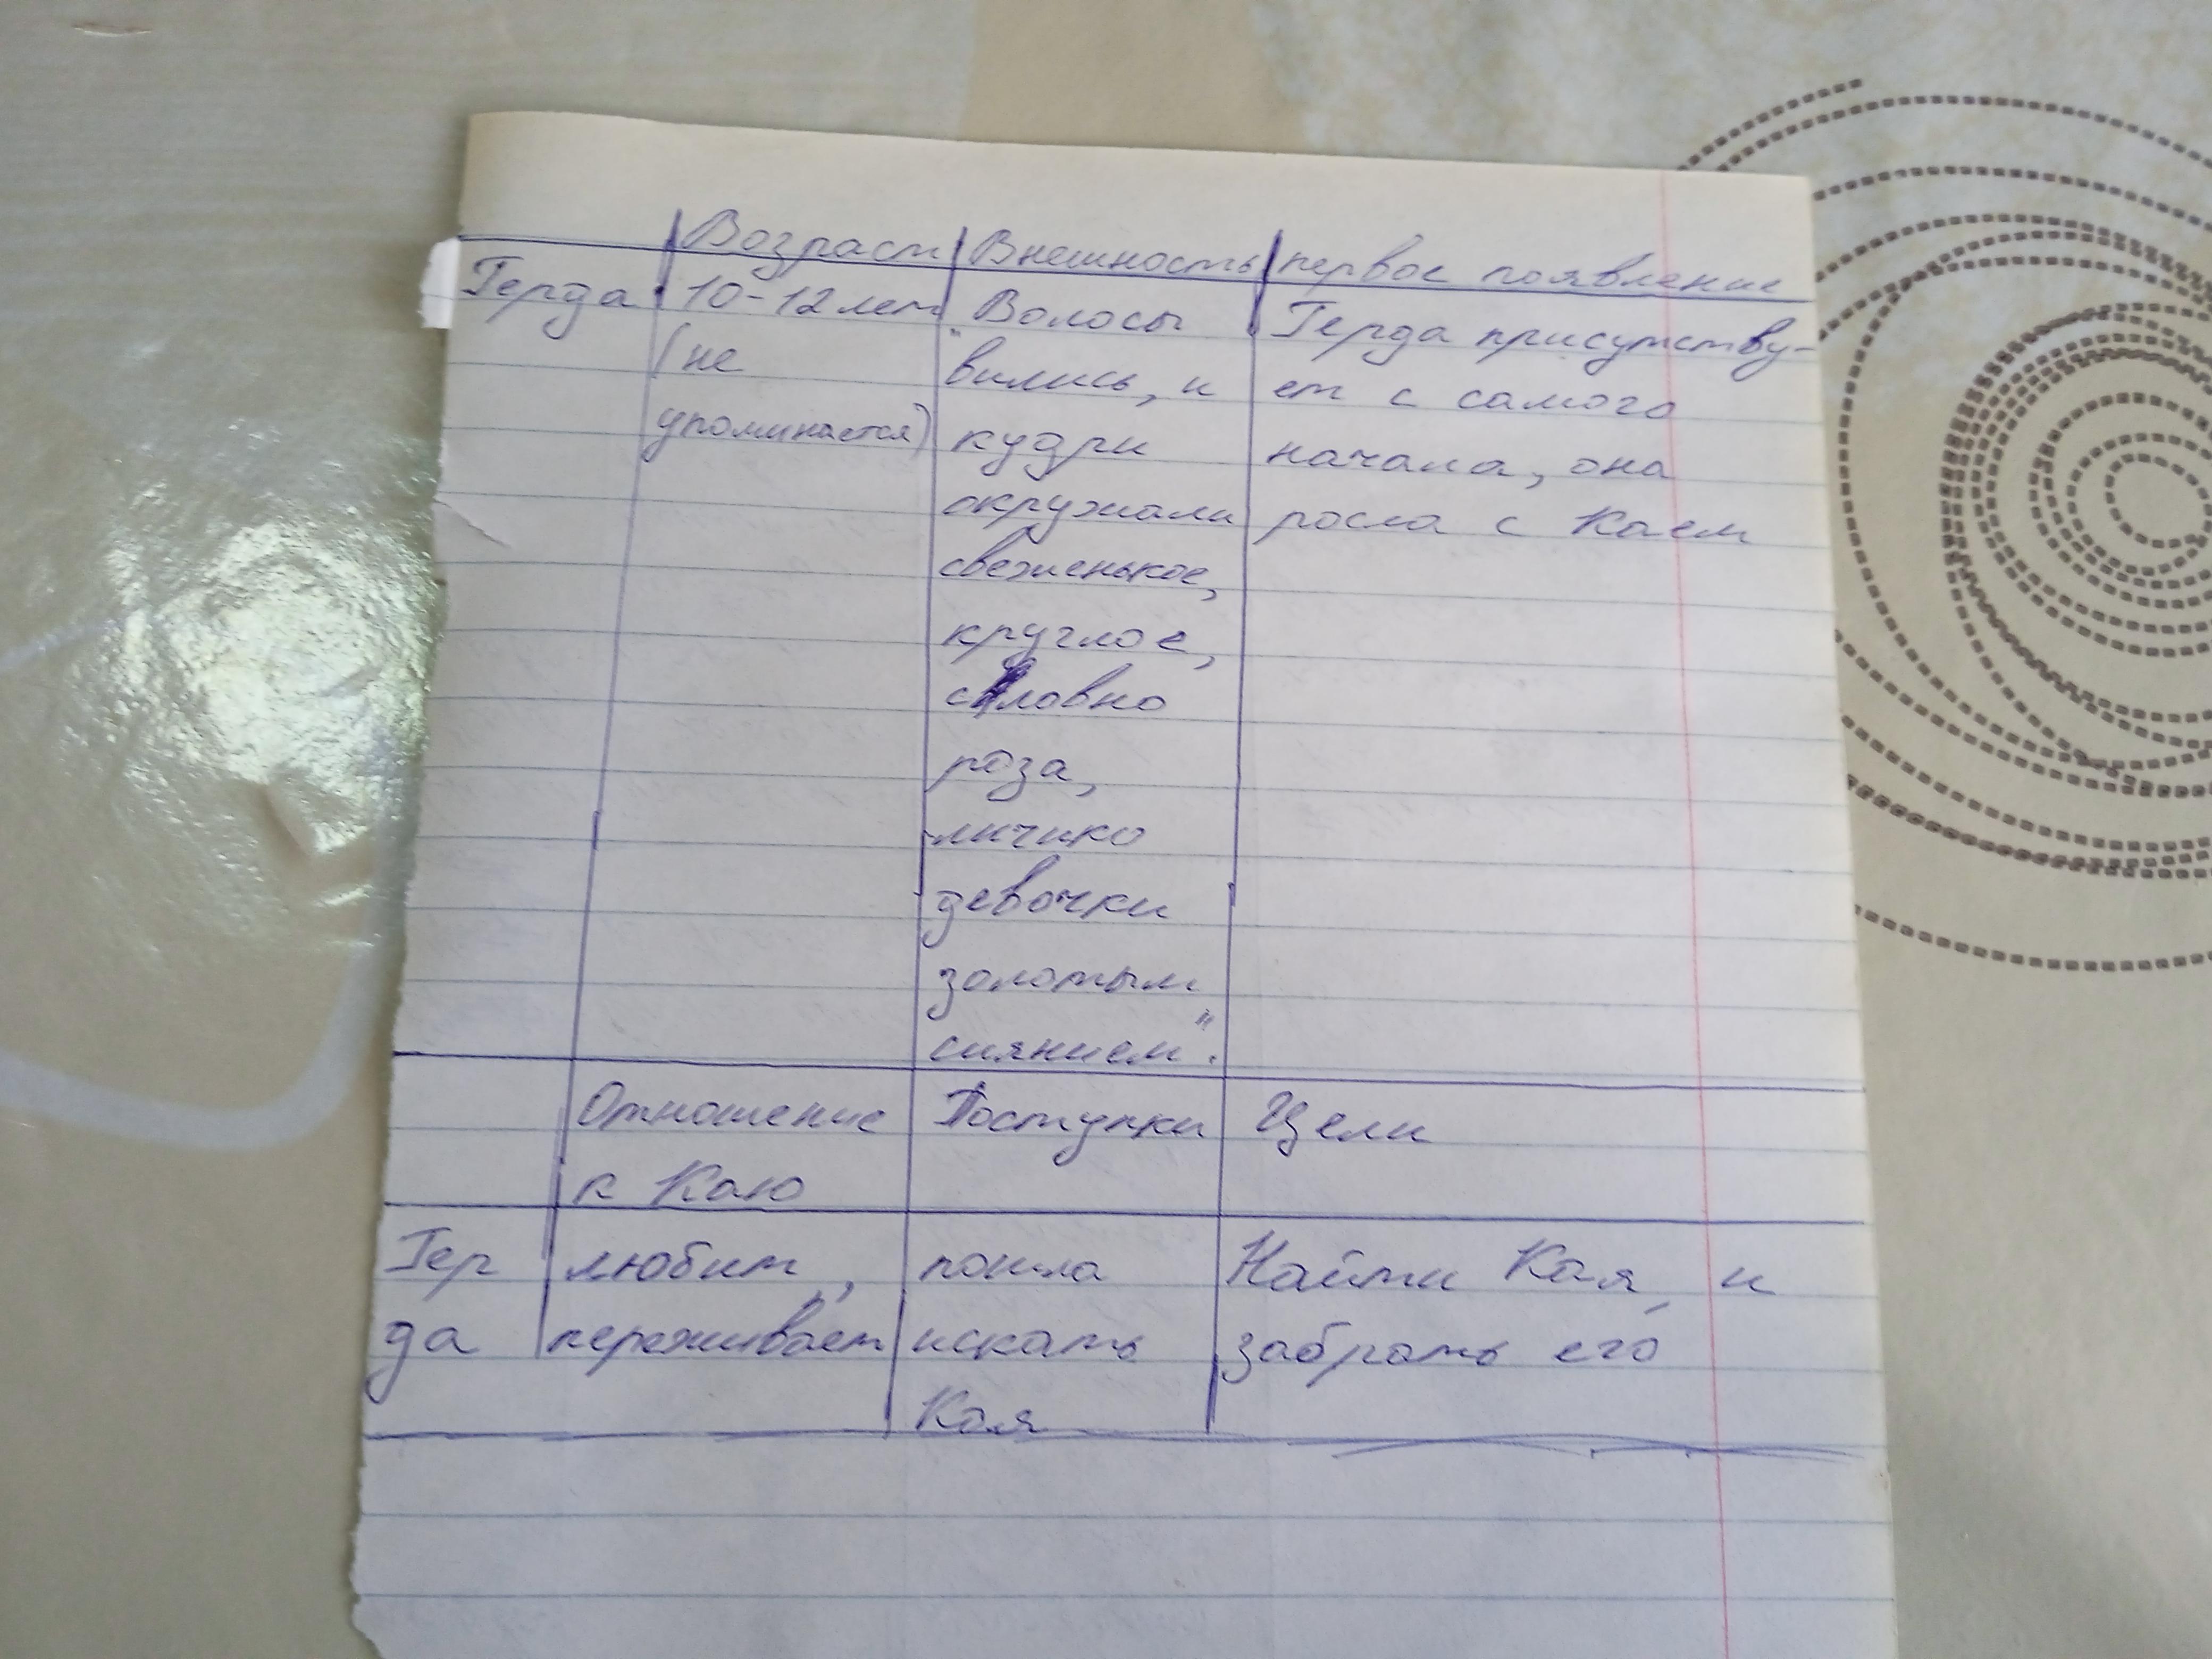 Возраст Внешность первое появление
Герда 10-12 лет "Волосы Герда присутству-
(не вились, и ет с самого
упоминается) кудри начала, она
окружали росла с Каем
свеженькое,
круглое,
словно
роза,
личико
девочки
золотым
сиянием".
Отношение Поступки Цели
к Каю
Гер любит, пошла Найти Кая, и
да переживает искать забрать его
Кая